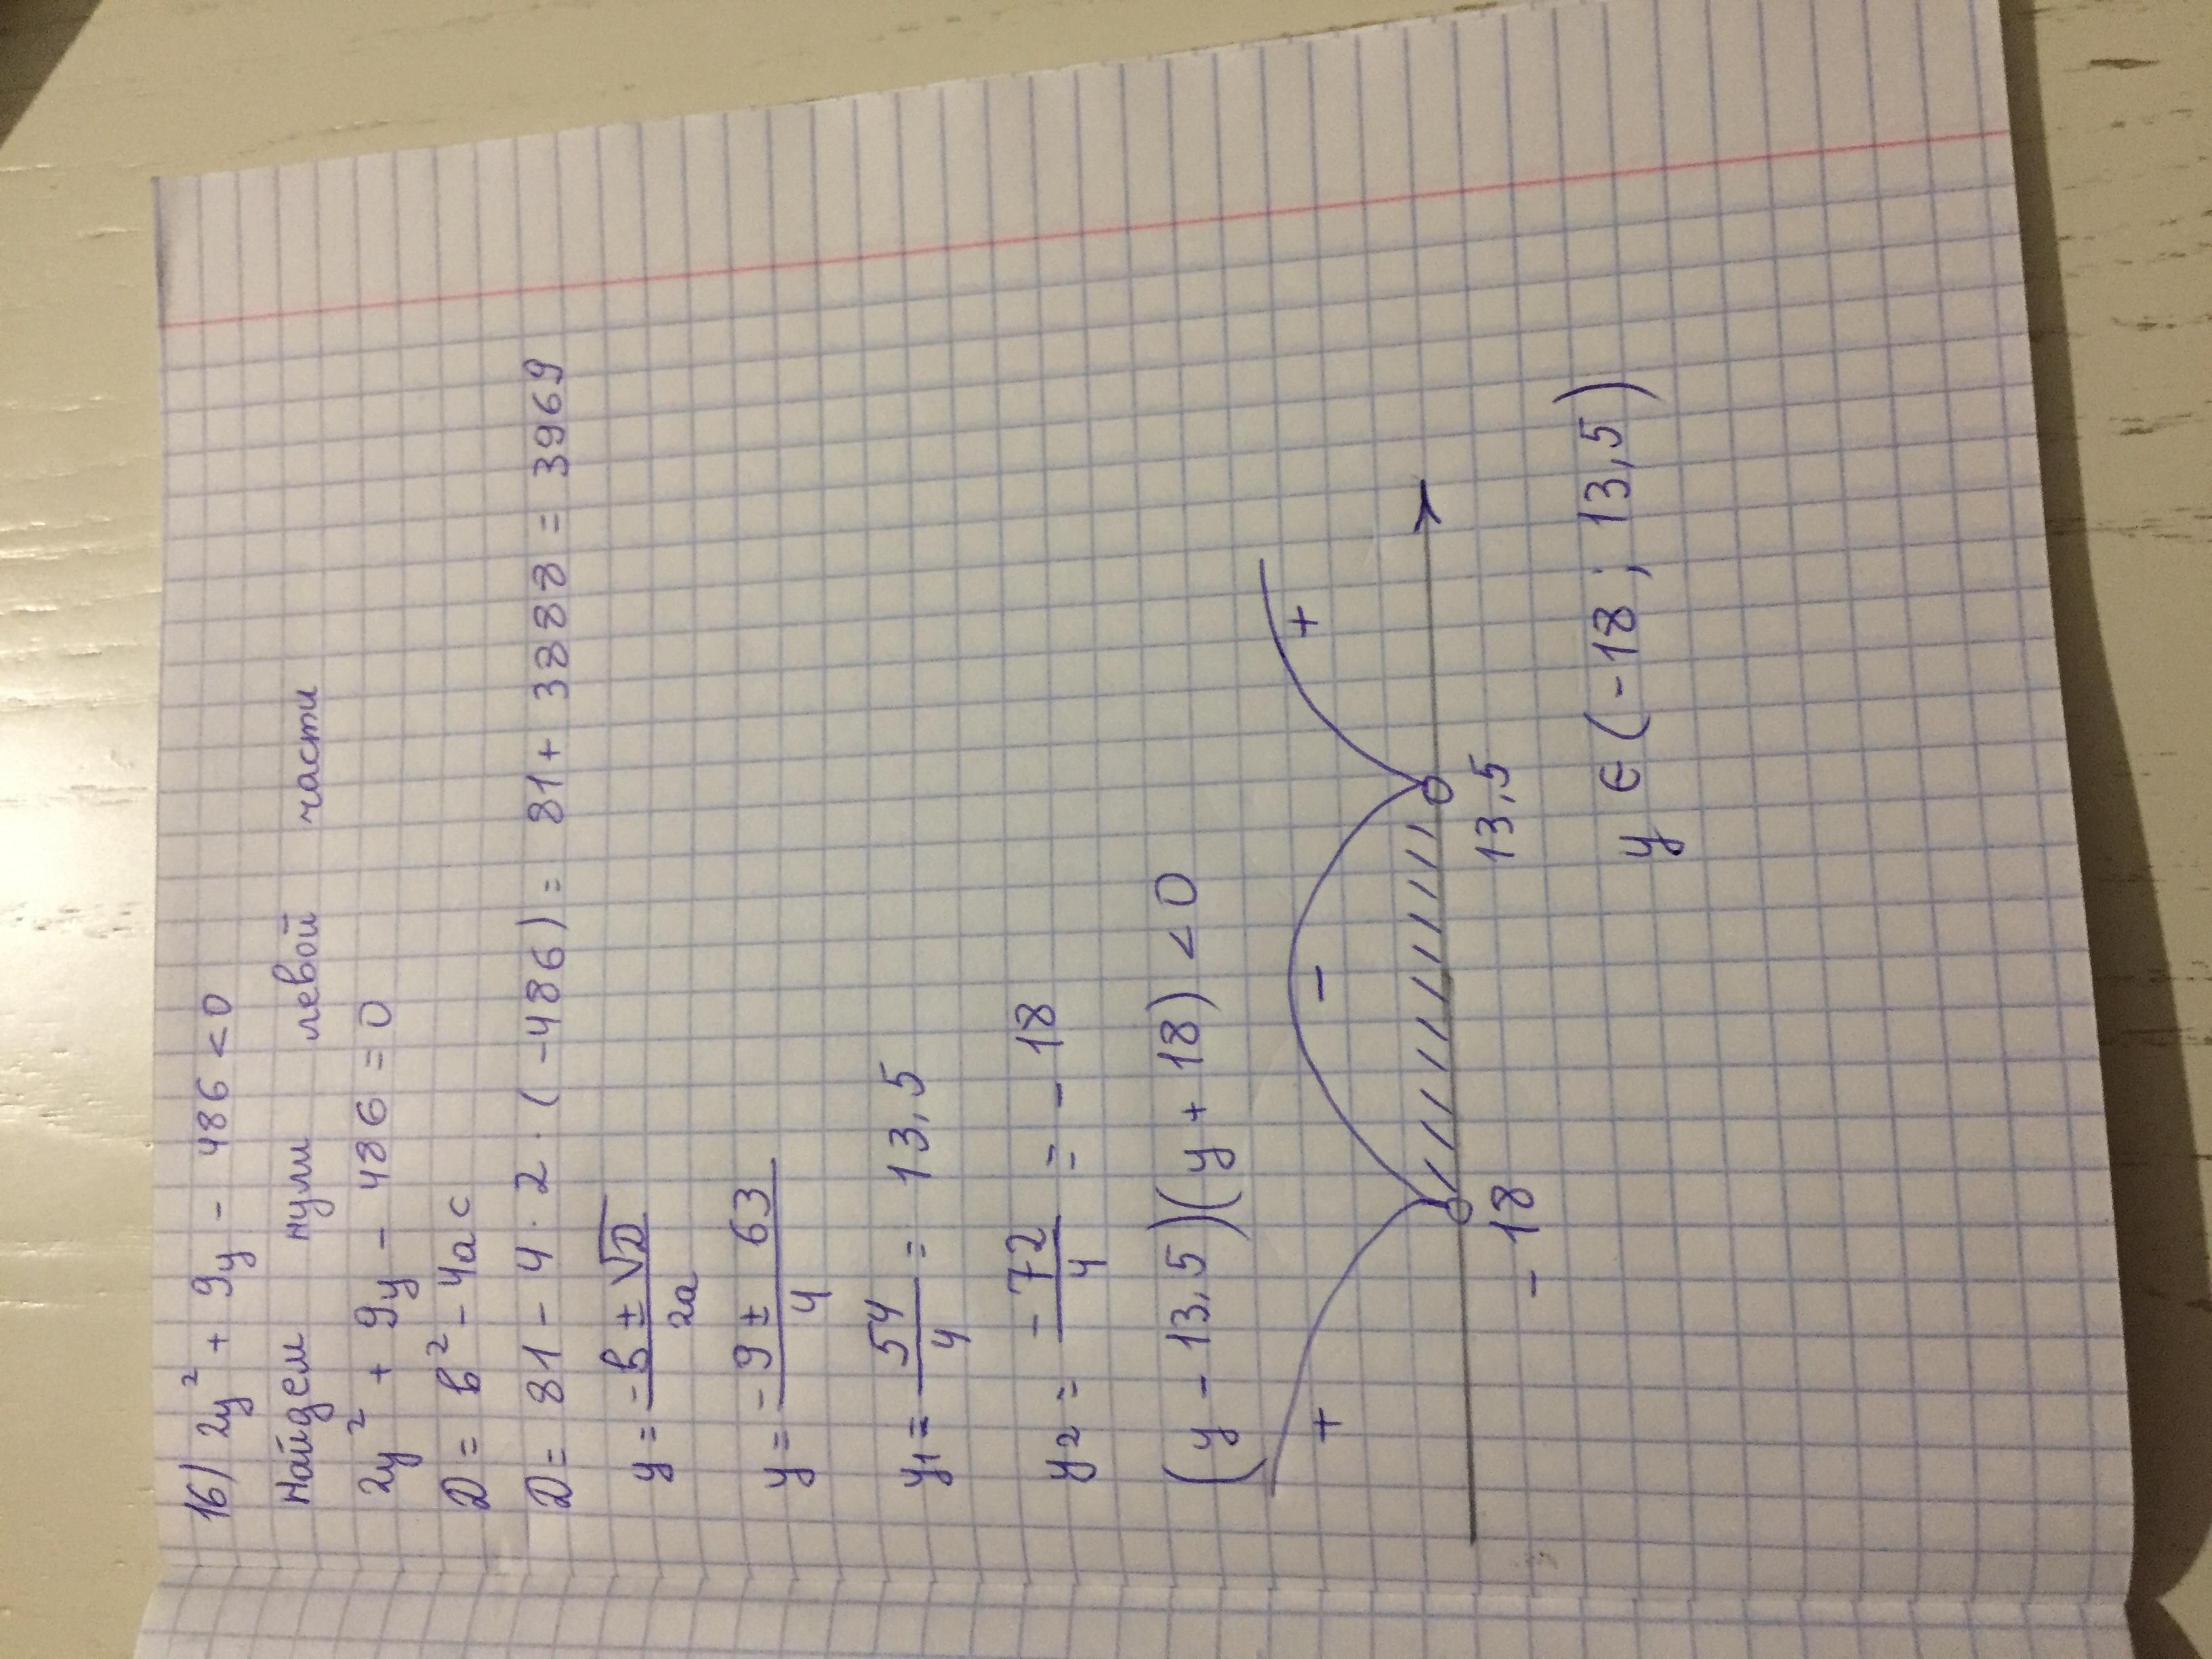 16) 2y² + 9y - 486 < 0
Найдем нули левой части
2y² + 9y - 486 = 0
D = b² - 4ac
D = 81 - 4 · 2 · (-486) = 81 + 3888 = 3969
y = (-b ± √D) / 2a
y = (-9 ± 63) / 4
y₁ = 54/4 = 13,5
y₂ = -72/4 = -18
(y - 13,5)(y + 18) < 0
+ - +
-18 13,5
y ∈ (-18; 13,5)